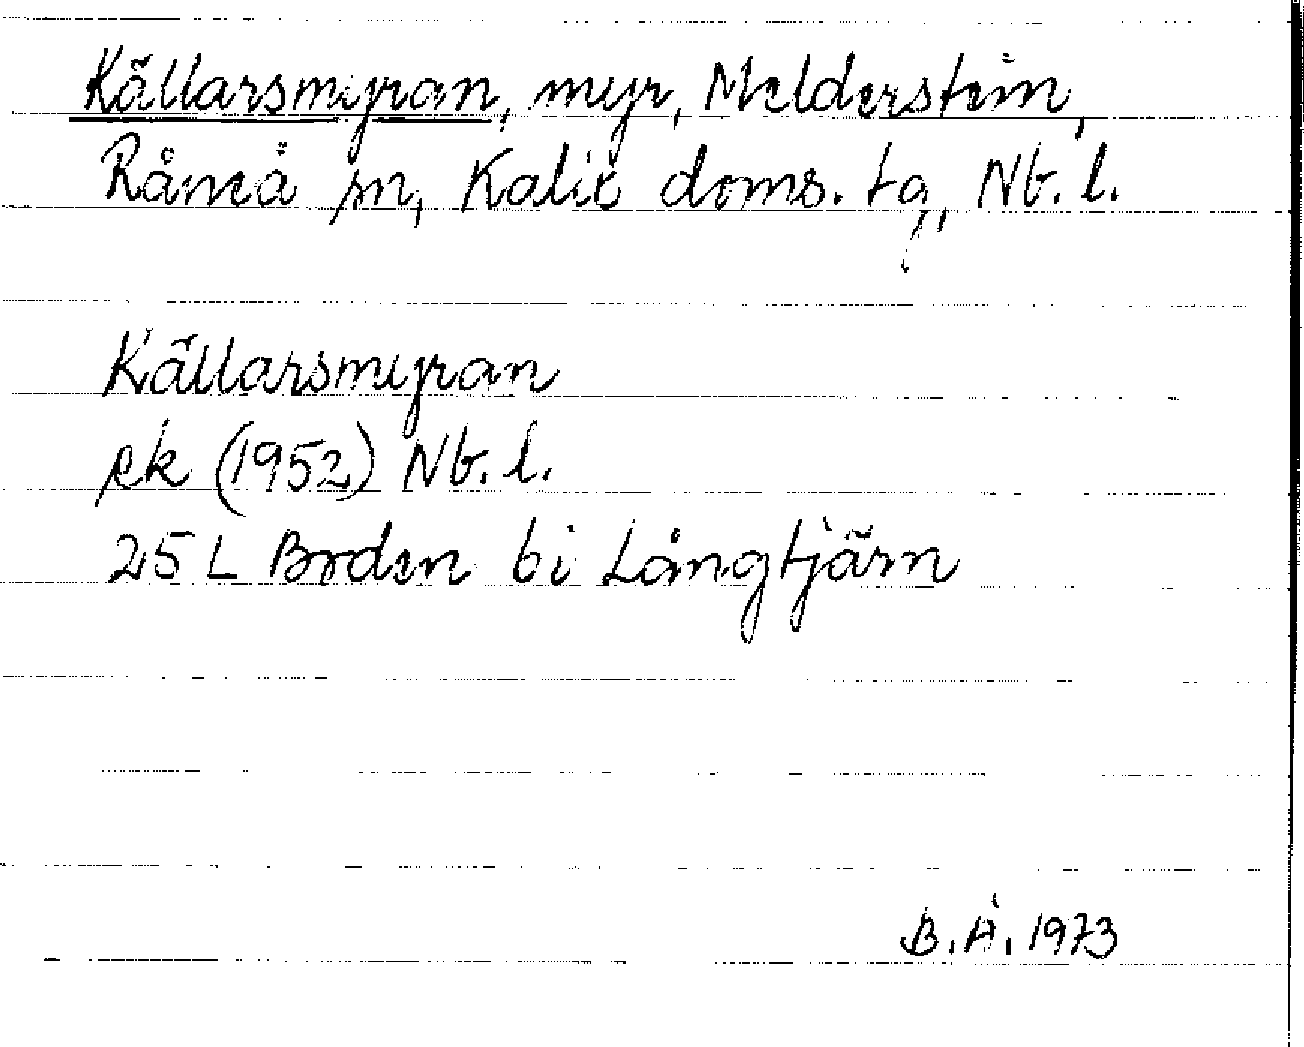 Källarsmyran, myr, Melderstein,
Råneå sn, Kalix doms. tg, Nb. l.
Källarsmyran
ek (1952) Nb. l.
25 L Boden bi Långtjärn
B. Å. 1973